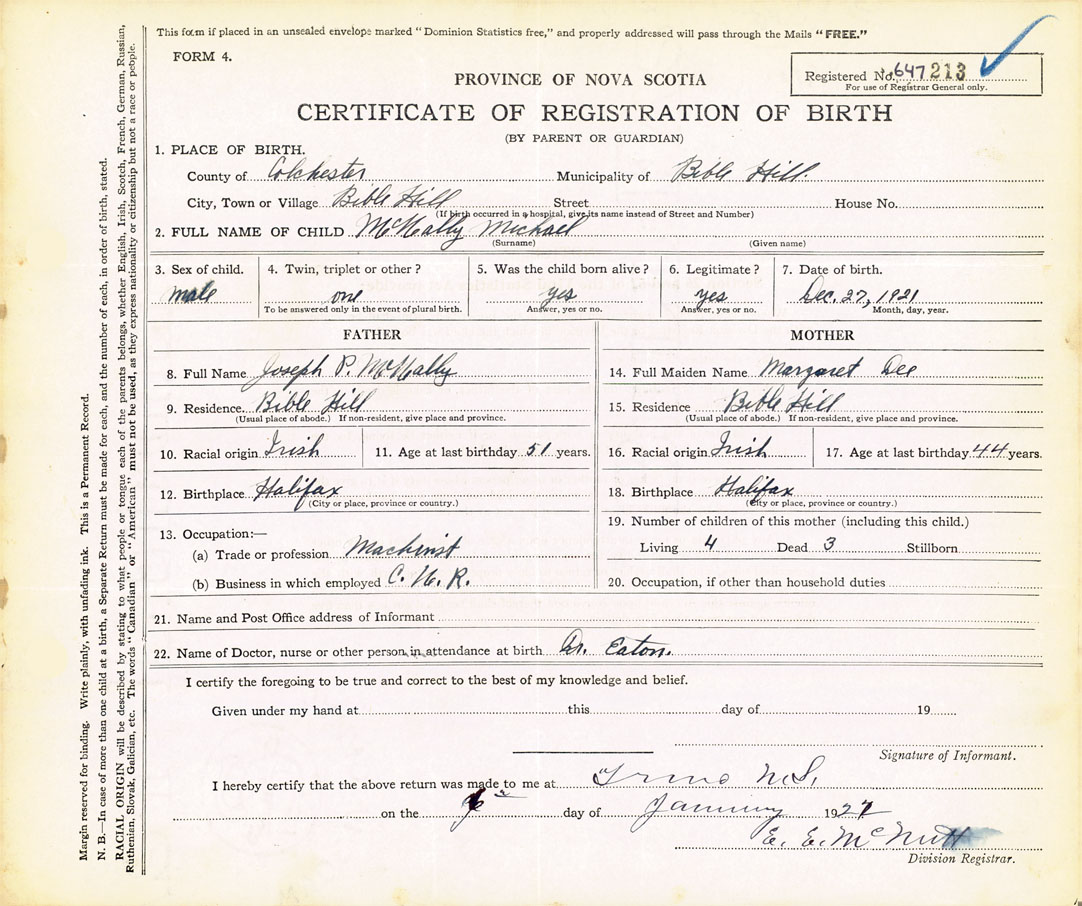 This form if placed in an unsealed envelope marked "Dominion Statistics free," and properly addressed will pass through the Mails "FREE."
FORM 4.
PROVINCE OF NOVA SCOTIA
Registered No. 647213
For use of Registrar General only.
CERTIFICATE OF REGISTRATION OF BIRTH
(BY PARENT OR GUARDIAN)
1. PLACE OF BIRTH.
County of Colchester Municipality of Bible Hill.
City, Town or Village Bible Hill Street House No.
(If birth occurred in a hospital, give its name instead of Street and Number)
2. FULL NAME OF CHILD McNally Michael
(Surname) (Given name)
3. Sex of child. 4. Twin, triplet or other? 5. Was the child born alive? 6. Legitimate? 7. Date of birth.
male one yes yes Dec. 27, 1921
To be answered only in the event of plural birth. Answer, yes or no. Answer, yes or no. Month, day, year.
FATHER
8. Full Name Joseph P. McNally
9. Residence. Bible Hill
(Usual place of abode.) If non-resident, give place and province.
10. Racial origin Irish 11. Age at last birthday 51 years.
12. Birthplace Halifax
(City or place, province or country.)
13. Occupation:—
(a) Trade or profession Machinist
(b) Business in which employed C. N. R.
MOTHER
14. Full Maiden Name Margaret Dee
15. Residence Bible Hill
(Usual place of abode.) If non-resident, give place and province.
16. Racial origin Irish 17. Age at last birthday 44 years.
18. Birthplace Halifax
(City or place, province or country.)
19. Number of children of this mother (including this child.)
Living 4 Dead 3 Stillborn
20. Occupation, if other than household duties
21. Name and Post Office address of Informant
22. Name of Doctor, nurse or other person in attendance at birth Dr. Eaton.
I certify the foregoing to be true and correct to the best of my knowledge and belief.
Given under my hand at this day of 19
Signature of Informant.
I hereby certify that the above return was made to me at Truro N.S.
on the day of January 1927
E. E. McNutt
Division Registrar.
Margin reserved for binding. Write plainly, with unfading ink. This is a Permanent Record.
N. B.—In case of more than one child at a birth, a Separate Return must be made for each, and the number of each, in order of birth, stated.
RACIAL ORIGIN will be described by stating to what people or tongue each of the parents belongs, whether English, Irish, Scotch, French, German, Russian,
Ruthenian, Slovak, Galician, etc. The words "Canadian" or "American" must not be used, as they express nationality or citizenship but not a race or people.